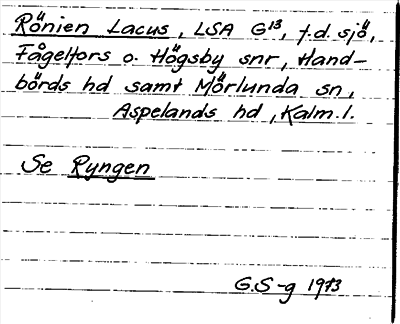 Rönien Lacus, LSA G¹³, f.d. sjö,
Fågelfors o. Högsby snr, Hand-
börds hd samt Mörlunda sn,
Aspelands hd, Kalm. l.
Se Ryngen
G.S-g 1973